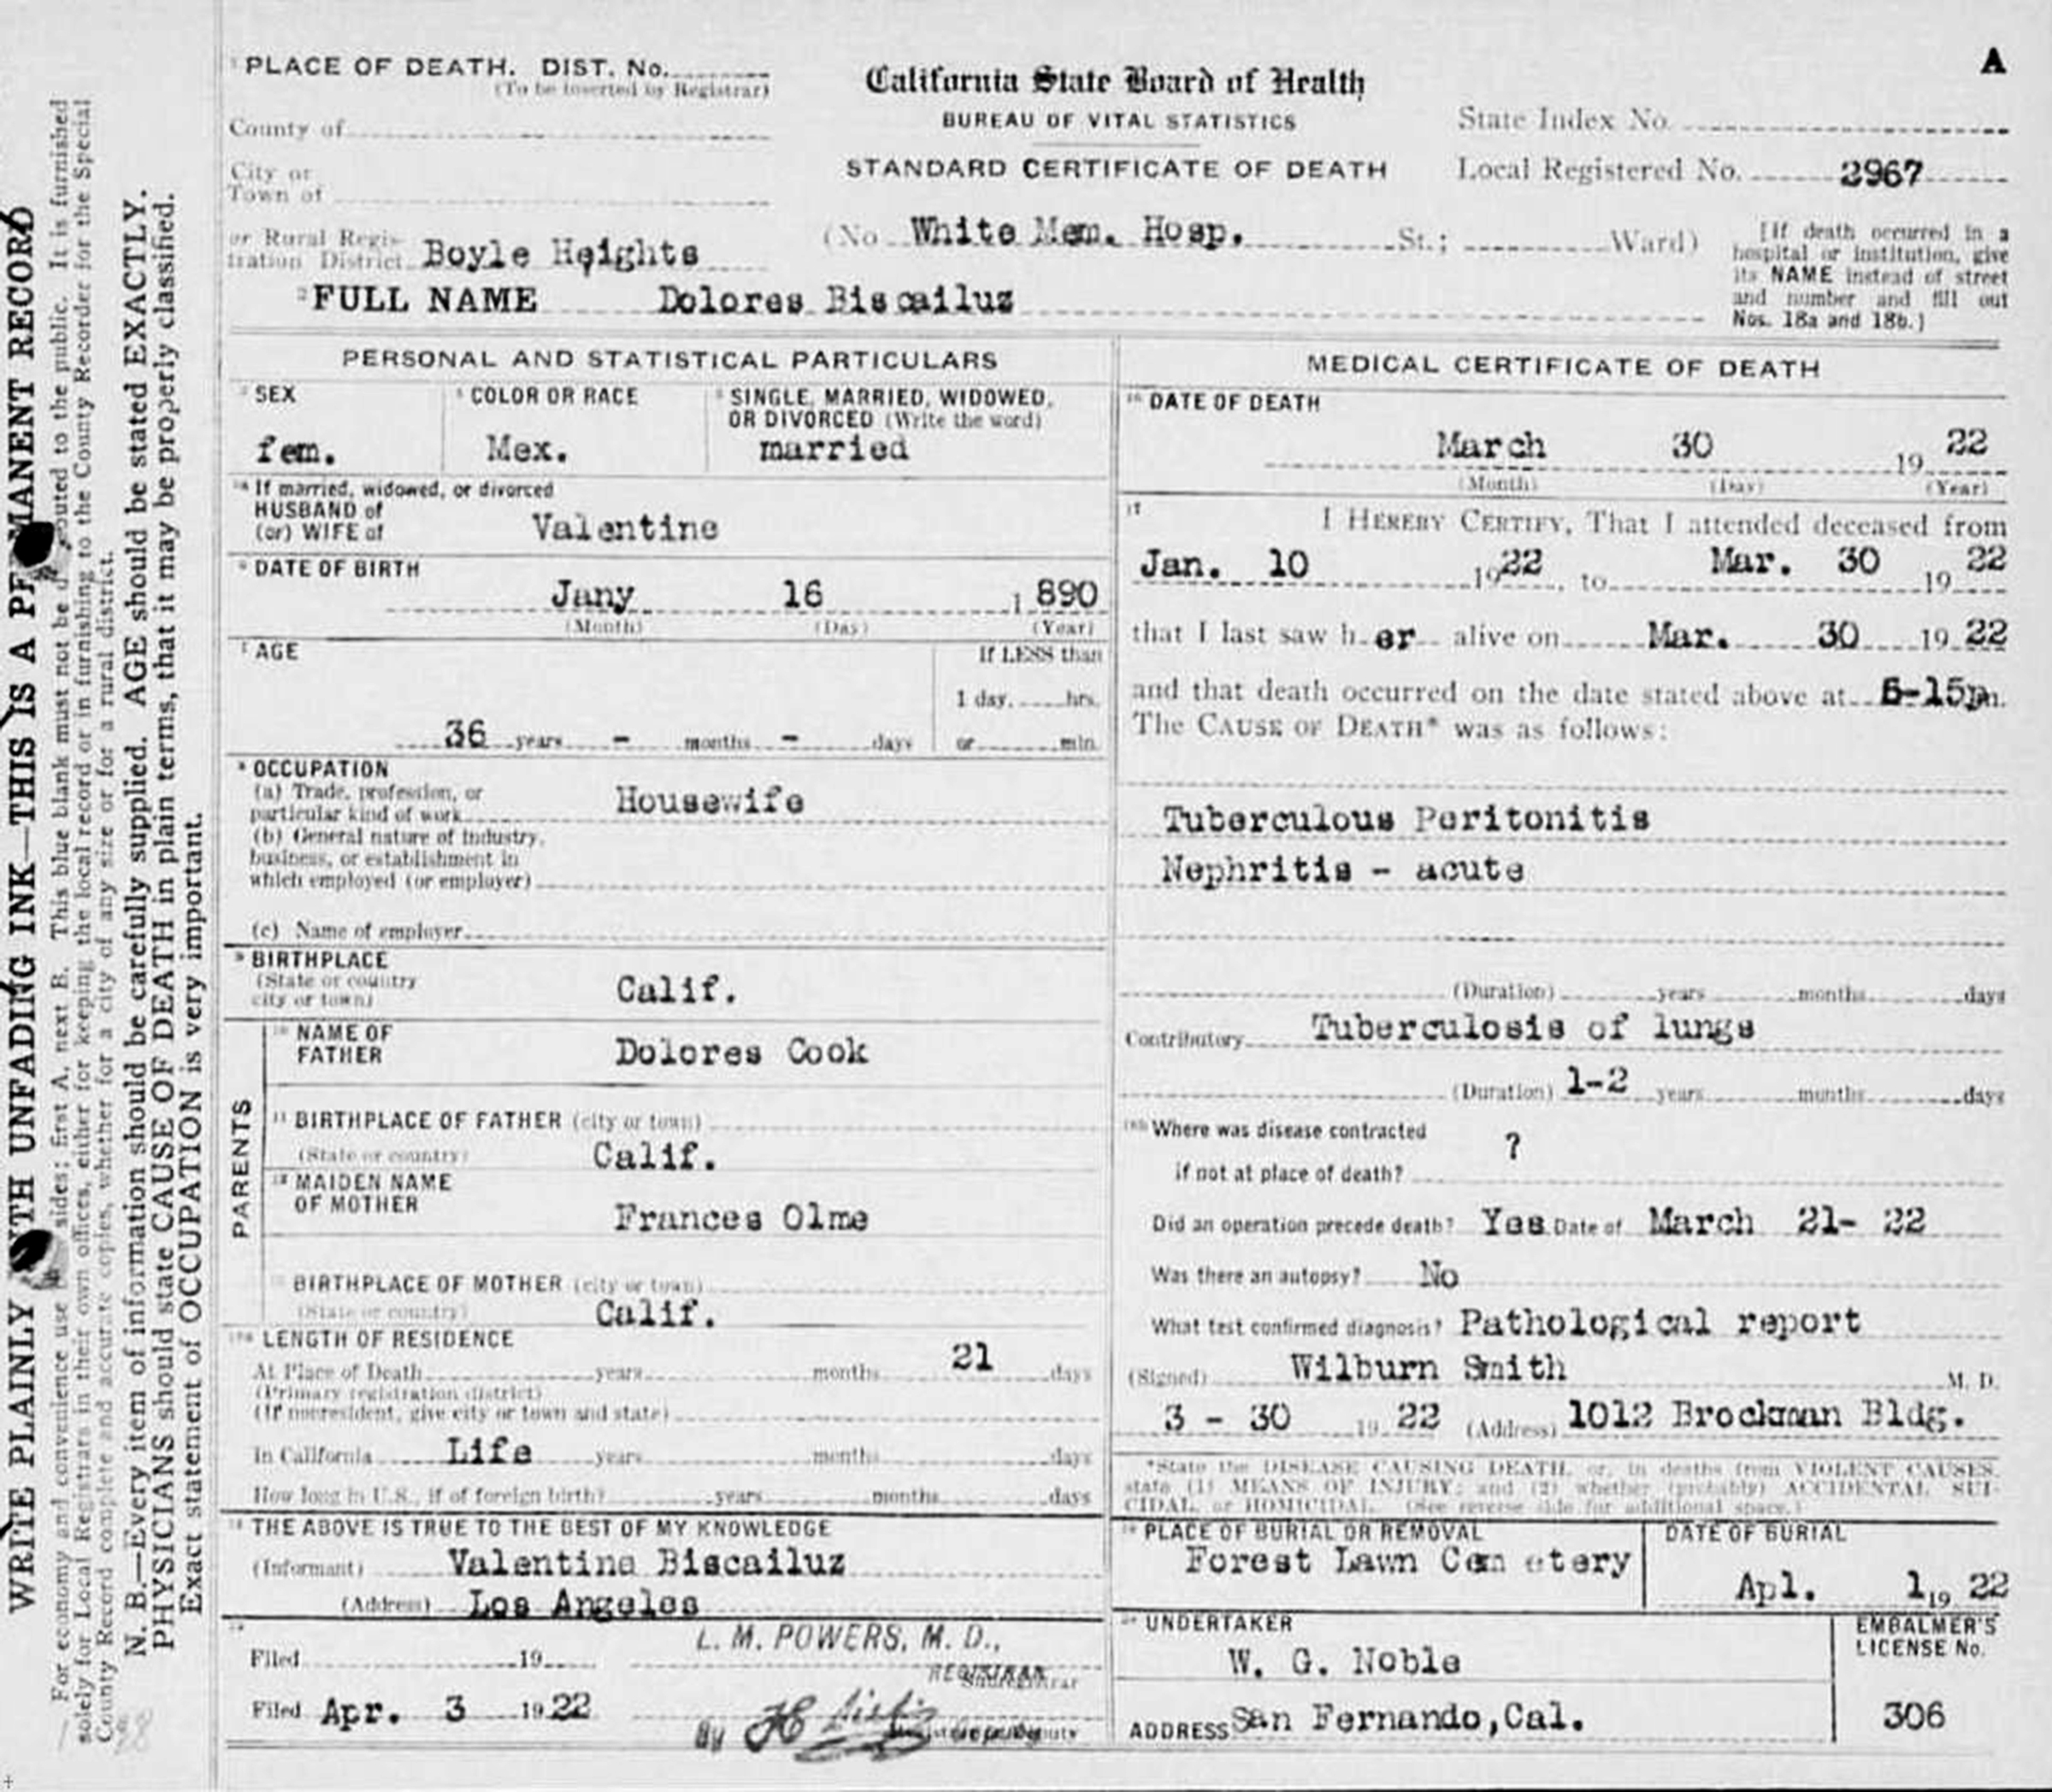 A
PLACE OF DEATH. DIST. No.
(To be inserted by Registrar)
County of
City or
Town of
or Rural Regis-
tration District Boyle Heights
California State Board of Health
BUREAU OF VITAL STATISTICS
STANDARD CERTIFICATE OF DEATH
State Index No.
Local Registered No. 2967
(No White Mem. Hosp. St.; Ward)
[If death occurred in a
hospital or institution, give
its NAME instead of street
and number and fill out
Nos. 18a and 18b.]
2 FULL NAME Dolores Biscailuz
PERSONAL AND STATISTICAL PARTICULARS
SEX
fem.
COLOR OR RACE
Mex.
SINGLE, MARRIED, WIDOWED,
OR DIVORCED (Write the word)
married
If married, widowed, or divorced
HUSBAND of
(or) WIFE of Valentine
DATE OF BIRTH
Jany 16 1 890
(Month) (Day) (Year)
AGE
If LESS than
1 day, hrs.
36 years - months - days or min.
OCCUPATION
(a) Trade, profession, or
particular kind of work Housewife
(b) General nature of Industry,
business, or establishment in
which employed (or employer)
(c) Name of employer
BIRTHPLACE
(State or country
city or town) Calif.
PARENTS
NAME OF
FATHER Dolores Cook
BIRTHPLACE OF FATHER (city or town)
(State or country) Calif.
MAIDEN NAME
OF MOTHER Frances Olme
BIRTHPLACE OF MOTHER (city or town)
(State or country) Calif.
LENGTH OF RESIDENCE
At Place of Death years months 21 days
(Primary registration district)
(If nonresident, give city or town and state)
In California Life years months days
How long in U.S., if of foreign birth? years months days
THE ABOVE IS TRUE TO THE BEST OF MY KNOWLEDGE
(Informant) Valentine Biscailuz
(Address) Los Angeles
Filed 19
L. M. POWERS, M. D.,
REGISTRAR
Filed Apr. 3 19 22
By
MEDICAL CERTIFICATE OF DEATH
DATE OF DEATH
March 30 19 22
(Month) (Day) (Year)
17 I HEREBY CERTIFY, That I attended deceased from
Jan. 10 1922, to Mar. 30 19 22
that I last saw h er alive on Mar. 30 19 22
and that death occurred on the date stated above at 5-15p m.
The CAUSE OF DEATH* was as follows:
Tuberculous Peritonitis
Nephritis - acute
(Duration) years months days
Contributory Tuberculosis of lungs
(Duration) 1-2 years months days
Where was disease contracted
if not at place of death? ?
Did an operation precede death? Yes Date of March 21- 22
Was there an autopsy? No
What test confirmed diagnosis? Pathological report
(Signed) Wilburn Smith M. D.
3 - 30 19 22 (Address) 1012 Brockman Bldg.
*State the DISEASE CAUSING DEATH, or, in deaths from VIOLENT CAUSES,
state (1) MEANS OF INJURY; and (2) whether (probably) ACCIDENTAL, SUI-
CIDAL, or HOMICIDAL. (See reverse side for additional space.)
PLACE OF BURIAL OR REMOVAL
Forest Lawn Cemetery
DATE OF BURIAL
Apl. 1, 19 22
UNDERTAKER
W. G. Noble
ADDRESS San Fernando, Cal.
EMBALMER'S
LICENSE No.
306
WRITE PLAINLY WITH UNFADING INK—THIS IS A PERMANENT RECORD
For economy and convenience use sides; first A, next B. This blue blank must not be to the public. It is furnished
solely for Local Registrars in their own offices, either for keeping the local record or in furnishing to the County Recorder for the Special
County Record complete and accurate copies, whether for a city of any size or for a rural district.
N. B.—Every item of information should be carefully supplied. AGE should be stated EXACTLY.
PHYSICIANS should state CAUSE OF DEATH in plain terms, that it may be properly classified.
Exact statement of OCCUPATION is very important.